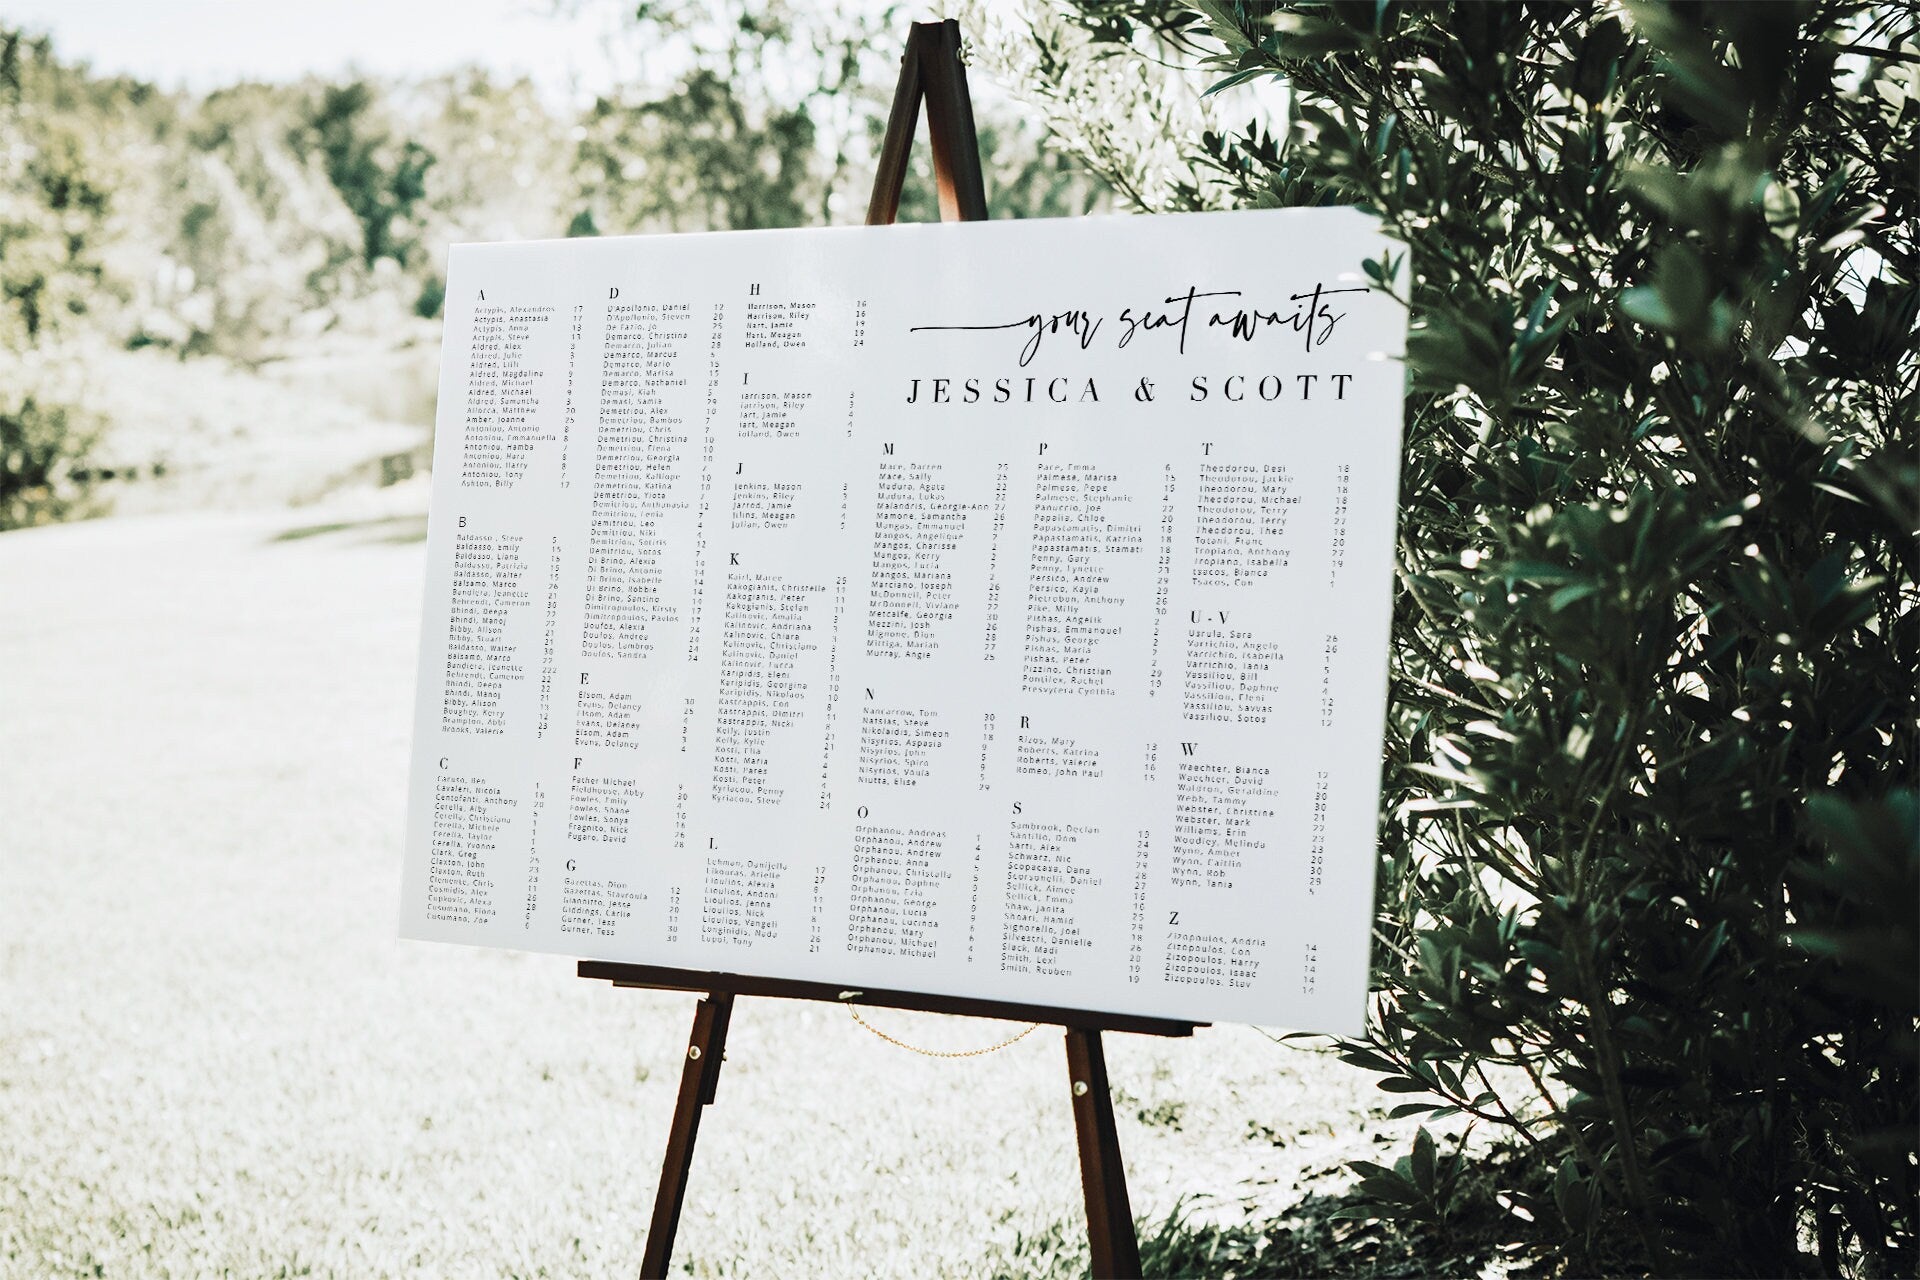 your seat awaits
JESSICA & SCOTT
A
Actypis, Alexandros 17
Actypis, Anastasia 17
Actypis, Anna 13
Actypis, Steve 13
Aldred, Alex 3
Aldred, Julie 3
Aldred, Lilli 3
Aldred, Magdalina 9
Aldred, Michael 3
Aldred, Michael 9
Aldred, Samantha 3
Allorca, Matthew 20
Amber, Joanne 25
Antoniou, Antonio 8
Antoniou, Emmanuella 8
Antoniou, Hamba 7
Antoniou, Hara 8
Antoniou, Harry 8
Antoniou, Tony 7
Ashton, Billy 17
B
Baldasso, Steve 5
Baldasso, Emily 15
Baldasso, Liana 15
Baldasso, Patrizia 15
Baldasso, Walter 15
Balsamo, Marco 26
Bandiera, Jeanette 21
Behrendt, Cameron 30
Bhindi, Deepa 22
Bhindi, Manoj 22
Bibby, Alison 21
Bibby, Stuart 21
Baldasso, Walter 30
Balsamo, Marco 22
Bandiera, Jeanette 222
Behrendt, Cameron 22
Bhindi, Deepa 22
Bhindi, Manoj 21
Bibby, Alison 13
Boughey, Kerry 12
Brampton, Abbi 23
Brooks, Valerie 3
C
Caruso, Ben 1
Cavaleri, Nicola 18
Centofanti, Anthony 20
Cerella, Alby 5
Cerella, Christiana 1
Cerella, Michele 1
Cerella, Taylor 1
Cerella, Yvonne 1
Clark, Greg 5
Claxton, John 25
Claxton, Ruth 23
Clemente, Chris 23
Cosmidis, Alex 11
Cupkovic, Alexa 26
Cusumano, Fiona 28
Cusumano, Zoe 6
D
D'Apollonio, Daniel 12
D'Apollonio, Steven 20
De Fazio, Jo 25
Demarco, Christina 28
Demarco, Julian 28
Demarco, Marcus 5
Demarco, Mario 15
Demarco, Marisa 15
Demarco, Nathaniel 28
Demasi, Kiah 5
Demasi, Samia 29
Demetriou, Alex 10
Demetriou, Bambos 7
Demetriou, Chris 7
Demetriou, Christina 10
Demetriou, Elena 10
Demetriou, Georgia 10
Demetriou, Helen 7
Demetriou, Kalliope 10
Demetriou, Katina 10
Demetriou, Yiota 7
Demitriou, Anthanasia 12
Demitriou, Xenia 7
Demitriou, Leo 4
Demitriou, Niki 4
Demitriou, Sotiris 12
Demitriou, Sotos 7
Di Brino, Alexia 14
Di Brino, Antonio 14
Di Brino, Isabelle 14
Di Brino, Robbie 14
Di Brino, Santino 14
Dimitropoulos, Kirsty 17
Dimitropoulos, Pavlos 17
Doufos, Alexia 24
Doulos, Andrea 24
Doulos, Lambros 24
Doulos, Sandra 24
E
Elsom, Adam 30
Evans, Delaney 25
Elsom, Adam 4
Evans, Delaney 3
Elsom, Adam 3
Evans, Delaney 4
F
Father Michael 9
Fieldhouse, Abby 30
Fowles, Emily 4
Fowles, Shane 16
Fowles, Sonya 16
Fragnito, Nick 26
Fugaro, David 28
G
Gazettas, Dion 12
Gazettas, Stavroula 12
Giannitto, Jesse 20
Giddings, Carlie 11
Gurner, Jess 30
Gurner, Tess 30
H
Harrison, Mason 16
Harrison, Riley 16
Hart, Jamie 19
Hart, Meagan 19
Holland, Owen 24
I
Iarrison, Mason 3
Iarrison, Riley 3
Iart, Jamie 4
Iart, Meagan 4
Iolland, Owen 5
J
Jenkins, Mason 3
Jenkins, Riley 3
Jarrod, Jamie 4
Jilins, Meagan 4
Julian, Owen 5
K
Kairl, Maree 25
Kakogianis, Christelle 12
Kakogianis, Peter 11
Kakogianis, Stefan 11
Kalinovic, Amalia 3
Kalinovic, Andriana 3
Kalinovic, Chiara 3
Kalinovic, Christiano 3
Kalinovic, Daniel 3
Kalinovic, Lucca 3
Karipidis, Eleni 10
Karipidis, Georgina 10
Karipidis, Nikolaos 10
Kastrappis, Con 8
Kastrappis, Dimitri 11
Kastrappis, Nicki 8
Kelly, Justin 21
Kelly, Kylie 21
Kosti, Elia 4
Kosti, Maria 4
Kosti, Pares 4
Kosti, Peter 4
Kyriacou, Penny 24
Kyriacou, Steve 24
L
Lehman, Danijella 17
Likouras, Arielle 27
Lioulios, Alexia 8
Lioulios, Andoni 11
Lioulios, Jenna 11
Lioulios, Nick 8
Lioulios, Vangeli 11
Longinidis, Nada 26
Lupoi, Tony 21
M
Mace, Darren 25
Mace, Sally 25
Madura, Agata 22
Madura, Lukas 22
Malandris, Georgie-Ann 27
Mamone, Samantha 26
Mangas, Emmanuel 27
Mangos, Angelique 2
Mangos, Charisse 2
Mangos, Kerry 2
Mangos, Lucia 2
Mangos, Mariana 2
Marciano, Joseph 26
McDonnell, Peter 22
McDonnell, Viviane 22
Metcalfe, Georgia 30
Mezzini, Josh 26
Mignone, Dion 28
Mittiga, Marian 27
Murray, Angie 25
N
Nancarrow, Tom 30
Natsias, Steve 13
Nikolaidis, Simeon 18
Nisyrios, Aspasia 9
Nisyrios, John 5
Nisyrios, Spiro 9
Nisyrios, Voula 5
Niutta, Elise 29
O
Orphanou, Andreas 1
Orphanou, Andrew 4
Orphanou, Andrew 4
Orphanou, Anna 5
Orphanou, Christalla 5
Orphanou, Daphne 6
Orphanou, Ezia 9
Orphanou, George 9
Orphanou, Lucia 9
Orphanou, Lucinda 6
Orphanou, Mary 6
Orphanou, Michael 4
Orphanou, Michael 6
P
Pace, Emma 6
Palmese, Marisa 15
Palmese, Pepe 15
Palmese, Stephanie 4
Panuccio, Joe 22
Papalia, Chloe 20
Papastamatis, Dimitri 18
Papastamatis, Katrina 18
Papastamatis, Stamati 18
Penny, Gary 23
Penny, Lynette 23
Persico, Andrew 29
Persico, Kayla 29
Pietrobon, Anthony 26
Pike, Milly 30
Pishas, Angelik 2
Pishas, Emmanouel 2
Pishas, George 2
Pishas, Maria 2
Pishas, Peter 2
Pizzino, Christian 29
Pontifex, Rachel 19
Presvytera Cynthia 9
R
Rizos, Mary 13
Roberts, Katrina 16
Roberts, Valerie 16
Romeo, John Paul 15
S
Sambrook, Declan 19
Santillo, Dom 24
Sarti, Alex 29
Schwarz, Nic 29
Scopacasa, Dana 28
Scorsonelli, Daniel 27
Sellick, Aimee 16
Sellick, Emma 16
Shaw, Janita 25
Shoari, Hamid 29
Signorello, Joel 18
Silvestri, Danielle 26
Slack, Madi 20
Smith, Lexi 19
Smith, Reuben 19
T
Theodorou, Desi 18
Theodorou, Jackie 18
Theodorou, Mary 18
Theodorou, Michael 18
Theodorou, Terry 27
Theodorou, Terry 27
Theodorou, Theo 18
Totani, Franc 20
Tropiano, Anthony 27
Tropiano, Isabella 19
Tsacos, Bianca 1
Tsacos, Con 1
U - V
Usrula, Sara 26
Varrichio, Angelo
Varrichio, Isabella
Varrichio, Tania
Vassiliou, Bill
Vassiliou, Daphne
Vassiliou, Eleni
Vassiliou, Savvas 12
Vassiliou, Sotos 12
W
Waechter, Bianca 12
Waechter, David 12
Waldron, Geraldine 30
Webb, Tammy 30
Webster, Christine 21
Webster, Mark 22
Williams, Erin 23
Woodley, Melinda 23
Wynn, Amber 20
Wynn, Caitlin 30
Wynn, Rob 29
Wynn, Tania 5
Z
Zizopoulos, Andria 14
Zizopoulos, Con 14
Zizopoulos, Harry 14
Zizopoulos, Isaac 14
Zizopoulos, Stav 14